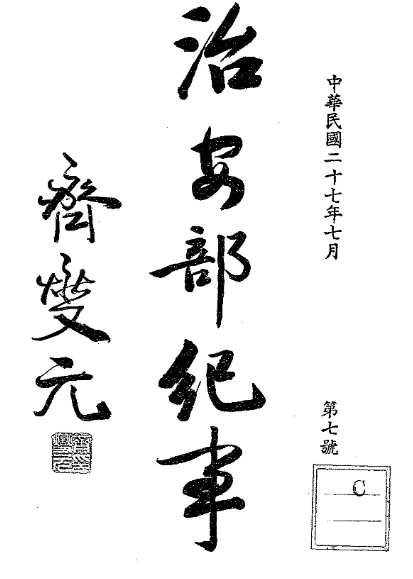 中華民國二十七年七月
第七號
C
治安部紀事
齊燮元